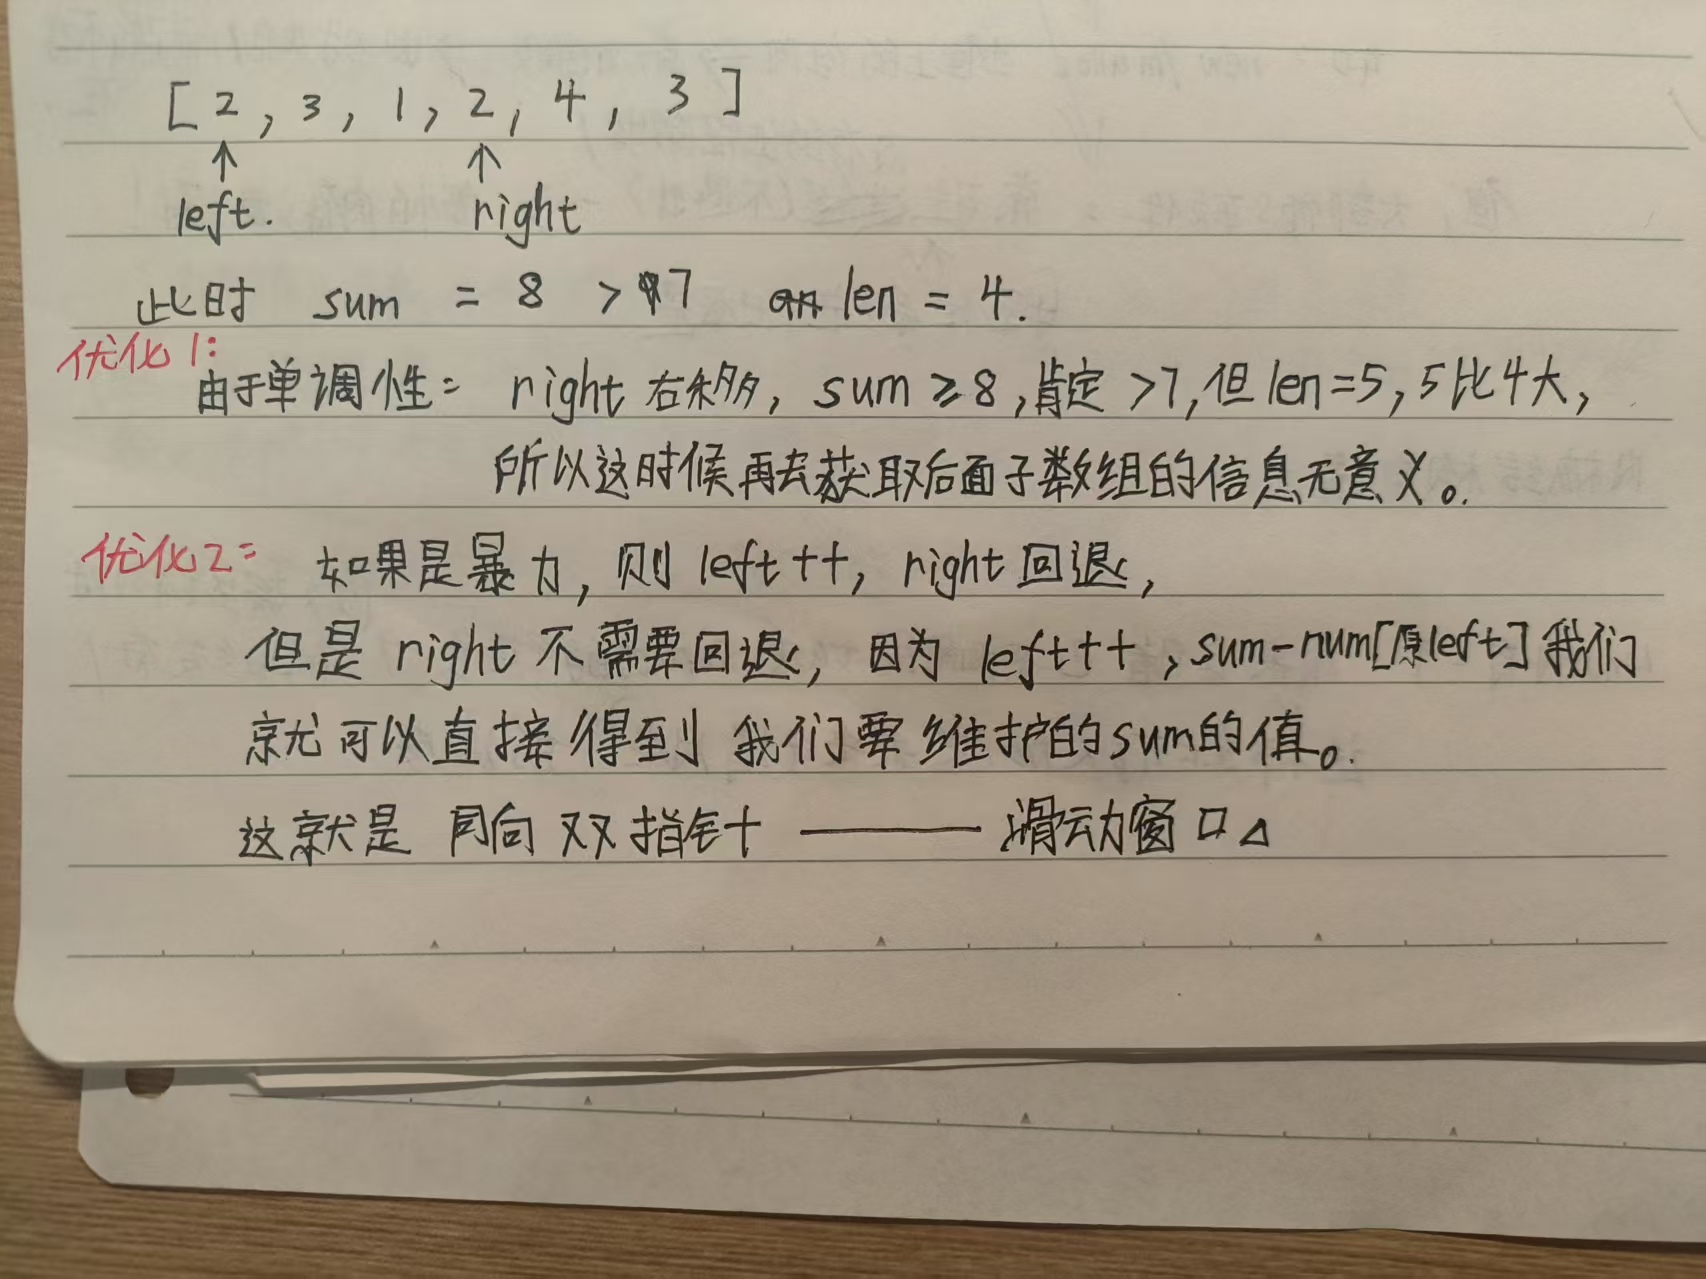 [2, 3, 1, 2, 4, 3]
↑ ↑
left. right
此时 sum = 8 > 7 len = 4.
优化1:
由于单调性: right 右移, sum ≥ 8, 肯定 >7, 但 len=5, 5比4大,
所以这时候再去获取后面子数组的信息无意义。
优化2: 如果是暴力, 则 left++, right 回退,
但是 right 不需要回退, 因为 left++, sum-num[原left] 我们
就可以直接得到 我们要维护的sum的值。
这就是 同向双指针 —— 滑动窗口△